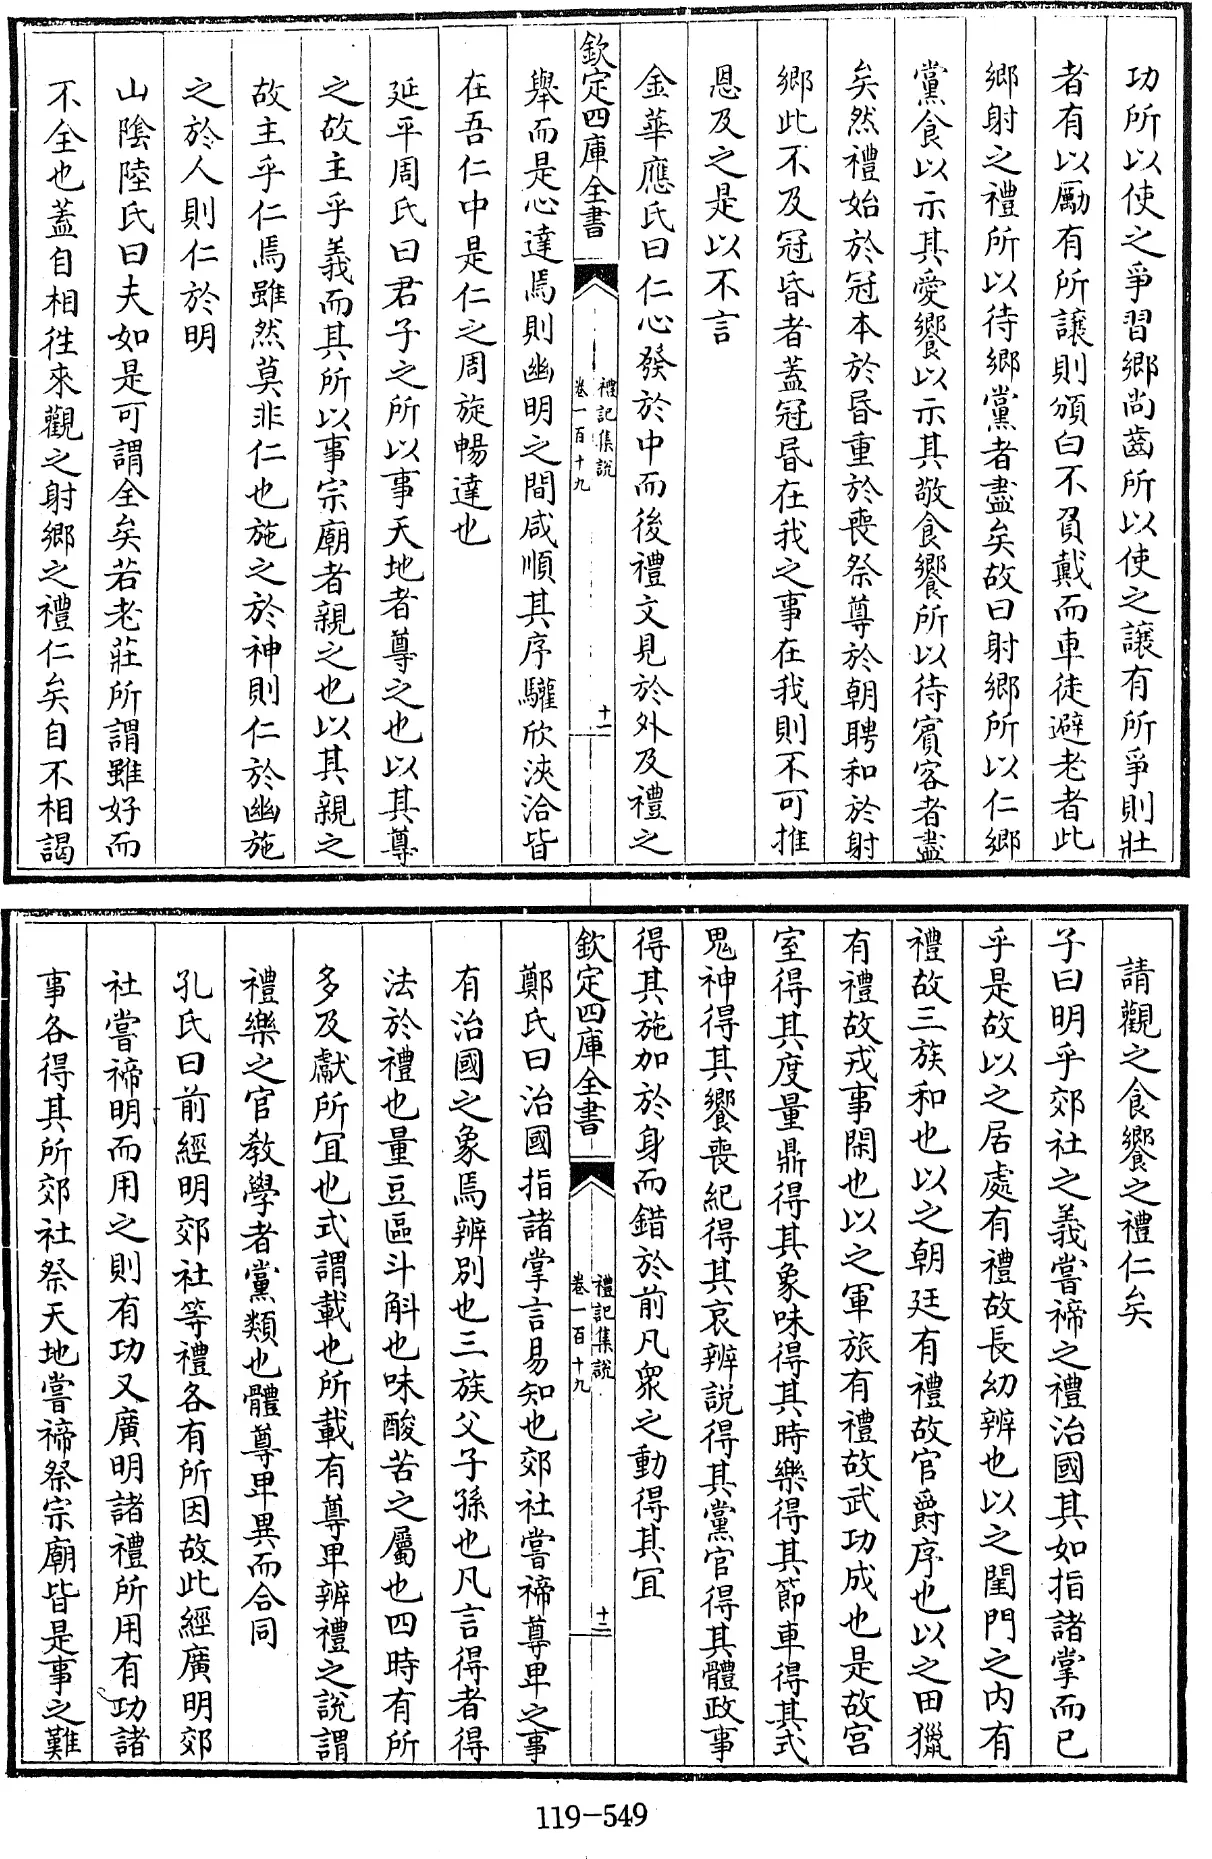 功所以使之爭習鄉尚齒所以使之讓有所爭則壯
者有以勵有所讓則頒白不負戴而車徒避老者此
鄉射之禮所以待鄉黨者盡矣故曰射鄉所以仁鄉
黨食以示其愛饗以示其敬食饗所以待賓客者盡
矣然禮始於冠本於昏重於喪祭尊於朝聘和於射
鄉此不及冠昏者蓋冠昏在我之事在我則不可推
恩及之是以不言
金華應氏曰仁心發於中而後禮文見於外及禮之
欽定四庫全書
禮記集說
卷一百十九
十一
舉而是心達焉則幽明之間咸順其序驩欣浹洽皆
在吾仁中是仁之周旋暢達也
延平周氏曰君子之所以事天地者尊之也以其尊
之故主乎義而其所以事宗廟者親之也以其親之
故主乎仁焉雖然莫非仁也施之於神則仁於幽施
之於人則仁於明
山陰陸氏曰夫如是可謂全矣若老莊所謂雖好而
不全也蓋自相徃來觀之射鄉之禮仁矣自不相謁
請觀之食饗之禮仁矣
子曰明乎郊社之義嘗禘之禮治國其如指諸掌而已
乎是故以之居處有禮故長幼辨也以之閨門之內有
禮故三族和也以之朝廷有禮故官爵序也以之田獵
有禮故戎事閑也以之軍旅有禮故武功成也是故宮
室得其度量鼎得其象味得其時樂得其節車得其式
鬼神得其饗喪紀得其哀辨說得其黨官得其體政事
得其施加於身而錯於前凡衆之動得其宜
欽定四庫全書
禮記集說
卷一百十九
十二
鄭氏曰治國指諸掌言易知也郊社嘗禘尊卑之事
有治國之象焉辨別也三族父子孫也凡言得者得
法於禮也量豆區斗斛也味酸苦之屬也四時有所
多及獻所宜也式謂載也所載有尊卑辨禮之說謂
禮樂之官教學者黨類也體尊卑異而合同
孔氏曰前經明郊社等禮各有所因故此經廣明郊
社嘗禘明而用之則有功又廣明諸禮所用有功諸
事各得其所郊社祭天地嘗禘祭宗廟皆是事之難
119-549